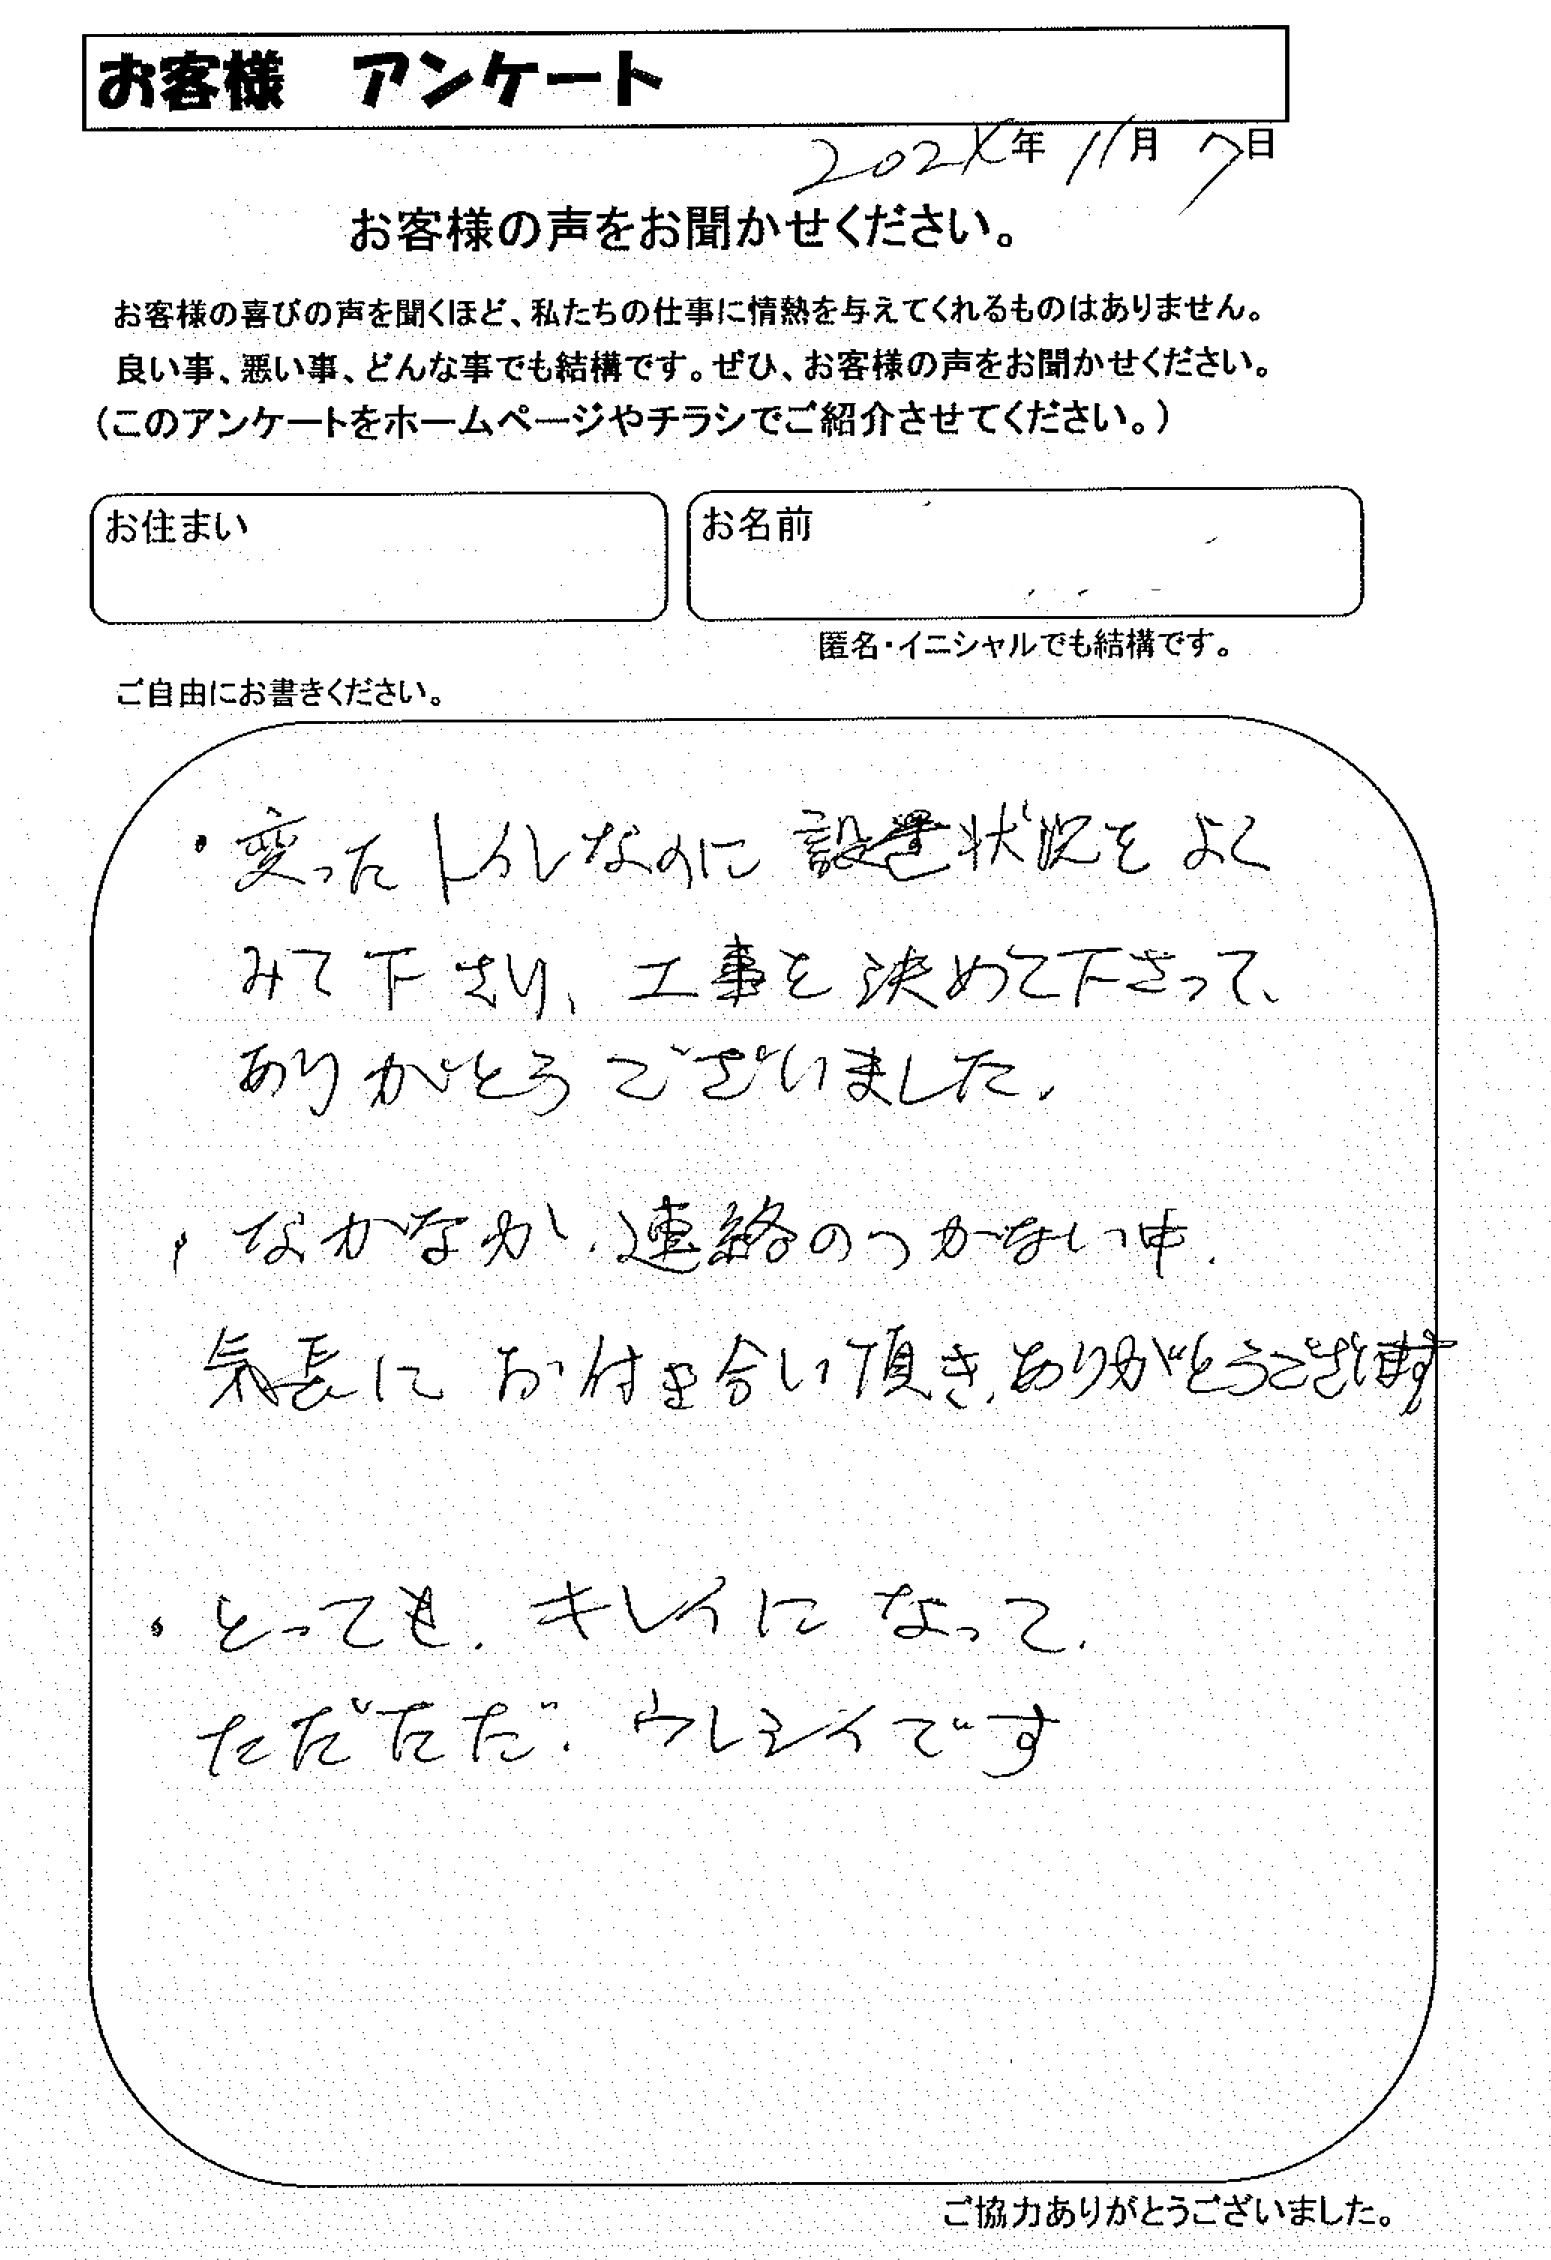 お客様 アンケート
2024年 11月 7日
お客様の声をお聞かせください。
お客様の喜びの声を聞くほど、私たちの仕事に情熱を与えてくれるものはありません。
良い事、悪い事、どんな事でも結構です。ぜひ、お客様の声をお聞かせください。
(このアンケートをホームページやチラシでご紹介させてください。)
お住まい
お名前
匿名・イニシャルでも結構です。
ご自由にお書きください。
・変ったトイレなのに設置状況をよく
みて下さり、工事を決めて下さって、
ありがとうございました。
・なかなか、連絡のつかない中、
気長にお付き合い頂き、ありがとうございます
・とっても、キレイになって、
ただただ、ウレシイです
ご協力ありがとうございました。